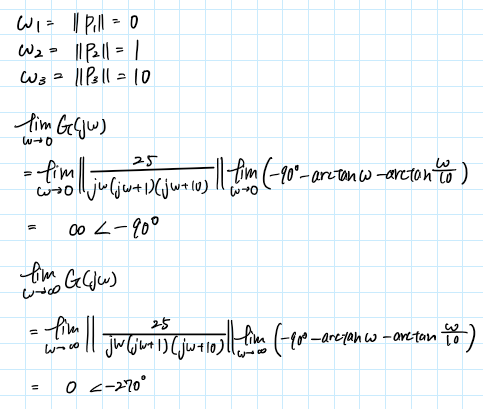 ω₁ = ‖P₁‖ = 0
ω₂ = ‖P₂‖ = 1
ω₃ = ‖P₃‖ = 10
lim_{ω→0} G(jω)
= lim_{ω→0} ‖ 25 / (jω(jω+1)(jω+10)) ‖ lim_{ω→0} (-90° - arctan ω - arctan ω/10)
= ∞ ∠-90°
lim_{ω→∞} G(jω)
= lim_{ω→∞} ‖ 25 / (jω(jω+1)(jω+10)) ‖ lim_{ω→∞} (-90° - arctan ω - arctan ω/10)
= 0 ∠-270°